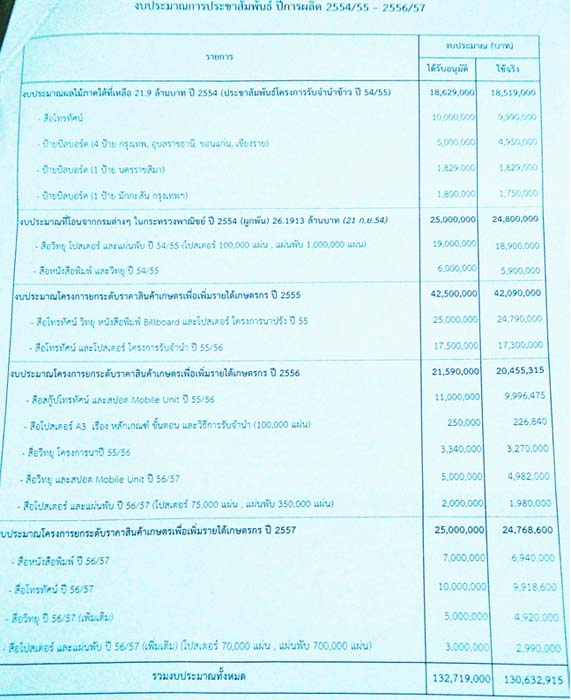 งบประมาณการประชาสัมพันธ์ ปีการผลิต 2554/55 - 2556/57
รายการ
งบประมาณ (บาท)
ได้รับอนุมัติ ใช้จริง
งบประมาณผลไม้ภาคใต้ที่เหลือ 21.9 ล้านบาท ปี 2554 (ประชาสัมพันธ์โครงการรับจำนำข้าว ปี 54/55) 18,629,000 18,519,000
- สื่อโทรทัศน์ 10,000,000 9,990,000
- ป้ายบิลบอร์ด (4 ป้าย กรุงเทพ, อุบลราชธานี, ขอนแก่น, เชียงราย) 5,000,000 4,950,000
- ป้ายบิลบอร์ด (1 ป้าย นครราชสีมา) 1,829,000 1,829,000
- ป้ายบิลบอร์ด (1 ป้าย มักกะสัน กรุงเทพฯ) 1,800,000 1,750,000
งบประมาณที่โอนจากกรมต่างๆ ในกระทรวงพาณิชย์ ปี 2554 (ผูกพัน) 26.1913 ล้านบาท (21 ก.ย.54) 25,000,000 24,800,000
- สื่อวิทยุ โปสเตอร์ และแผ่นพับ ปี 54/55 (โปสเตอร์ 100,000 แผ่น , แผ่นพับ 1,000,000 แผ่น) 19,000,000 18,900,000
- สื่อหนังสือพิมพ์ และวิทยุ ปี 54/55 6,000,000 5,900,000
งบประมาณโครงการยกระดับราคาสินค้าเกษตรเพื่อเพิ่มรายได้เกษตรกร ปี 2555 42,500,000 42,090,000
- สื่อโทรทัศน์ วิทยุ หนังสือพิมพ์ Billboard และโปสเตอร์ โครงการนาปรัง ปี 55 25,000,000 24,790,000
- สื่อโทรทัศน์ และโปสเตอร์ โครงการรับจำนำ ปี 55/56 17,500,000 17,300,000
งบประมาณโครงการยกระดับราคาสินค้าเกษตรเพื่อเพิ่มรายได้เกษตรกร ปี 2556 21,590,000 20,455,315
- สื่อสกู๊ปโทรทัศน์ และสปอต Mobile Unit ปี 55/56 11,000,000 9,996,475
- สื่อโปสเตอร์ A3 เรื่อง หลักเกณฑ์ ขั้นตอน และวิธีการรับจำนำ (100,000 แผ่น) 250,000 226,840
- สื่อวิทยุ โครงการนาปี 55/56 3,340,000 3,270,000
- สื่อวิทยุ และสปอต Mobile Unit ปี 56/57 5,000,000 4,982,000
- สื่อโปสเตอร์ และแผ่นพับ ปี 56/57 (โปสเตอร์ 75,000 แผ่น , แผ่นพับ 350,000 แผ่น) 2,000,000 1,980,000
งบประมาณโครงการยกระดับราคาสินค้าเกษตรเพื่อเพิ่มรายได้เกษตรกร ปี 2557 25,000,000 24,768,600
- สื่อหนังสือพิมพ์ ปี 56/57 7,000,000 6,940,000
- สื่อโทรทัศน์ ปี 56/57 10,000,000 9,918,600
- สื่อวิทยุ ปี 56/57 (เพิ่มเติม) 5,000,000 4,920,000
- สื่อโปสเตอร์ และแผ่นพับ ปี 56/57 (เพิ่มเติม) (โปสเตอร์ 70,000 แผ่น , แผ่นพับ 700,000 แผ่น) 3,000,000 2,990,000
รวมงบประมาณทั้งหมด 132,719,000 130,632,915